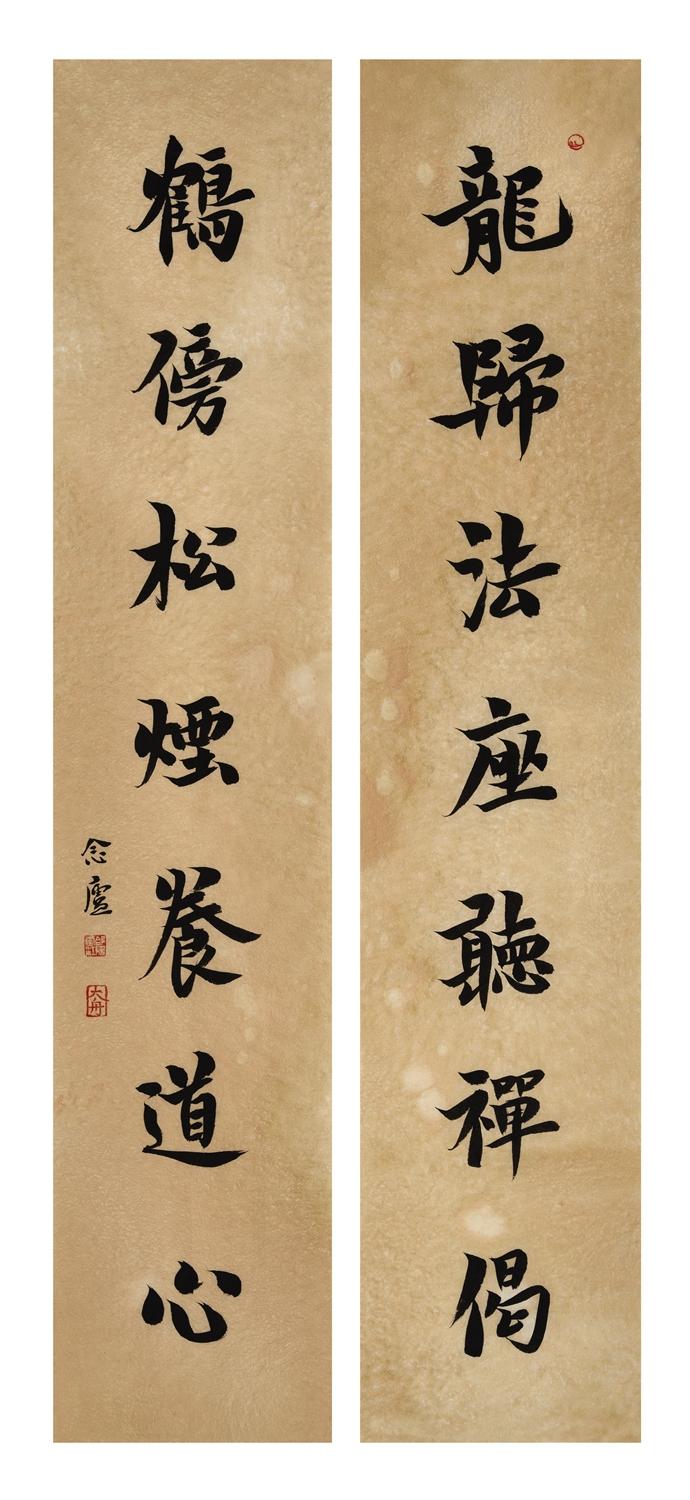 龍歸法座聽禪偈
鶴傍松煙養道心
念廬
大丹